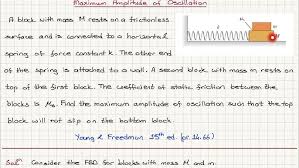 Maximum Amplitude of Oscillation
A block with mass M rests on a frictionless
surface and is connected to a horizontal
spring of force constant k. The other end
of the spring is attached to a wall. A second block with mass m rests on
top of the first block. The coefficient of static friction between the
blocks is Ms. Find the maximum amplitude of oscillation such that the top
block will not slip on the bottom block.
Young & Freedman 15th ed. (pr. 14.66)
Sol: Consider the FBD for blocks with mass M and m